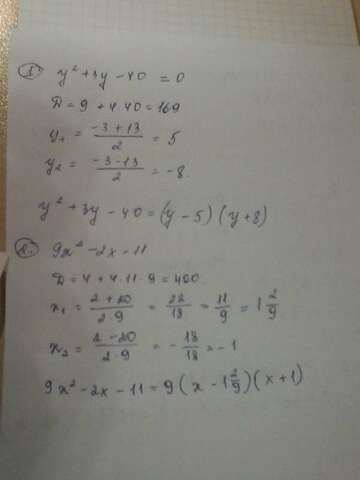 1. y² + 3y - 40 = 0
D = 9 + 4·40 = 169
y₁ = (-3 + 13)/2 = 5
y₂ = (-3 - 13)/2 = -8.
y² + 3y - 40 = (y - 5)(y + 8)
2. 9x² - 2x - 11
D = 4 + 4·11·9 = 400.
x₁ = (2 + 20)/(2·9) = 22/18 = 11/9 = 1 2/9
x₂ = (2 - 20)/(2·9) = -18/18 = -1
9x² - 2x - 11 = 9(x - 1 2/9)(x + 1)